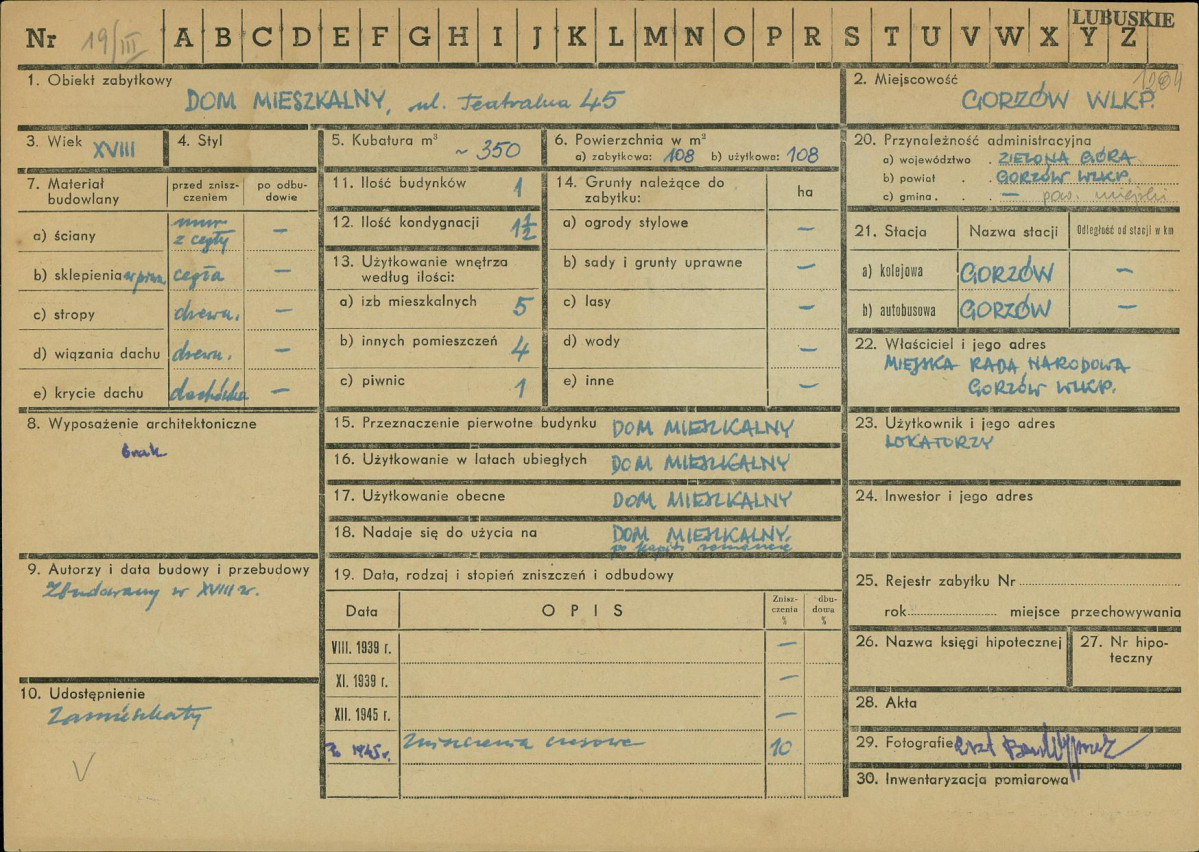 LUBUSKIE
Nr 19/III A B C D E F G H I J K L M N O P R S T U V W X Y Z
1. Obiekt zabytkowy
DOM MIESZKALNY, ul. Teatralna 45
2. Miejscowość
GORZÓW WLKP.
3. Wiek XVIII
4. Styl
5. Kubatura m³ ~ 350
6. Powierzchnia w m²
a) zabytkowa: 108 b) użytkowa: 108
7. Materiał budowlany
przed znisz-
czeniem
po odbu-
dowie
a) ściany mur z cegły —
b) sklepienia w piwn. cegła —
c) stropy drewn. —
d) wiązania dachu drewn. —
e) krycie dachu dachówka —
8. Wyposażenie architektoniczne
brak
9. Autorzy i data budowy i przebudowy
Zbudowany w XVIII w.
10. Udostępnienie
Zamieszkały
V
11. Ilość budynków 1
12. Ilość kondygnacji 1½
13. Użytkowanie wnętrza
według ilości:
a) izb mieszkalnych 5
b) innych pomieszczeń 4
c) piwnic 1
14. Grunty należące do
zabytku:
ha
a) ogrody stylowe —
b) sady i grunty uprawne —
c) lasy —
d) wody —
e) inne —
15. Przeznaczenie pierwotne budynku DOM MIESZKALNY
16. Użytkowanie w latach ubiegłych DOM MIESZKALNY
17. Użytkowanie obecne DOM MIESZKALNY
18. Nadaje się do użycia na DOM MIESZKALNY.
19. Data, rodzaj i stopień zniszczeń i odbudowy
Data OPIS Znisz-
czenia
%
dbu-
dowa
%
VIII. 1939 r. —
XI. 1939 r. —
XII. 1945 r. —
Po 1945 r. Zniszczenia czasowe 10
20. Przynależność administracyjna
a) województwo . ZIELONA GÓRA
b) powiat . . GORZÓW WLKP.
c) gmina . . — pow. miejski
21. Stacja Nazwa stacji Odległość od stacji w km
a) kolejowa GORZÓW —
b) autobusowa GORZÓW —
22. Właściciel i jego adres
MIEJSKA RADA NARODOWA
GORZÓW WLKP.
23. Użytkownik i jego adres
LOKATORZY
24. Inwestor i jego adres
25. Rejestr zabytku Nr
rok miejsce przechowywania
26. Nazwa księgi hipotecznej
27. Nr hipo-
teczny
28. Akta
29. Fotografie
30. Inwentaryzacja pomiarowa